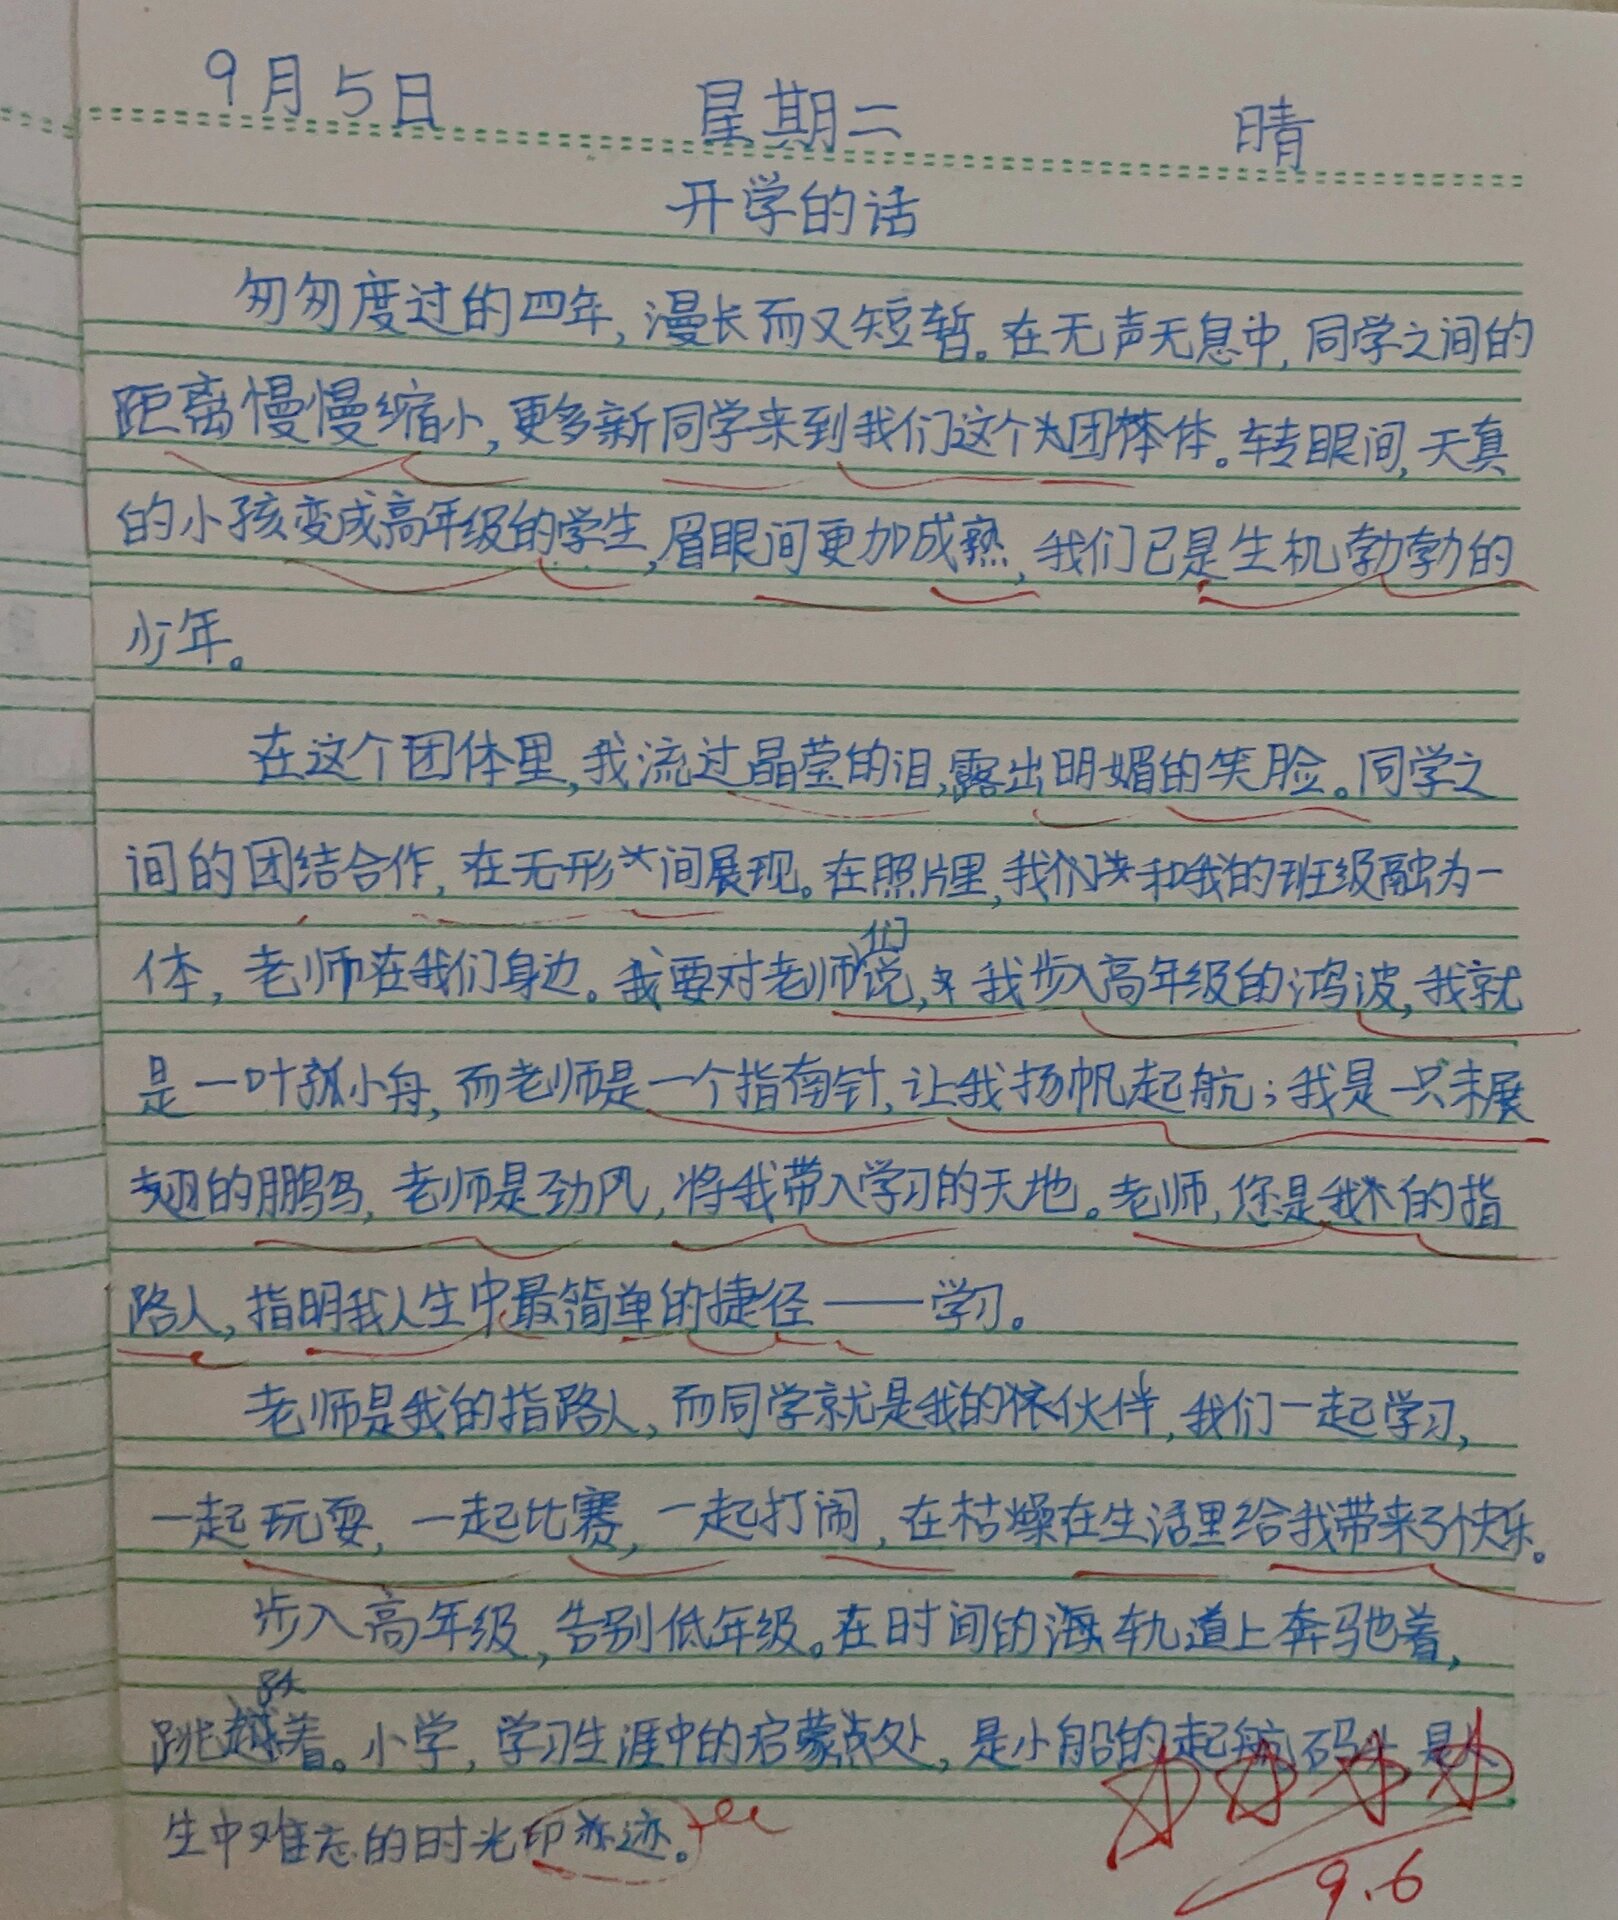 9月5日 星期二 晴
开学的话
匆匆度过的四年,漫长而又短暂。在无声无息中,同学之间的
距离慢慢缩小,更多新同学来到我们这个大团体。转眼间,天真
的小孩变成高年级的学生,眉眼间更加成熟,我们已是生机勃勃的
少年。
在这个团体里,我流过晶莹的泪,露出明媚的笑脸。同学之
间的团结合作,在无形间展现。在照片里,我们和我的班级融为一
体,老师在我们身边。我要对老师们说,我步入高年级的鸿波,我就
是一叶孤小舟,而老师是一个指南针,让我扬帆起航;我是一只未展
翅的鹏鸟,老师是劲风,将我带入学习的天地。老师,您是我的指
路人,指明我人生中最简单的捷径——学习。
老师是我的指路人,而同学就是我的伙伴,我们一起学习,
一起玩耍,一起比赛,一起打闹,在枯燥在生活里给我带来了快乐。
步入高年级,告别低年级。在时间的轨道上奔驰着,
跳跃着。小学,学习生涯中的启蒙处,是小船的起航码头,是人
生中难忘的时光印迹。
9.6